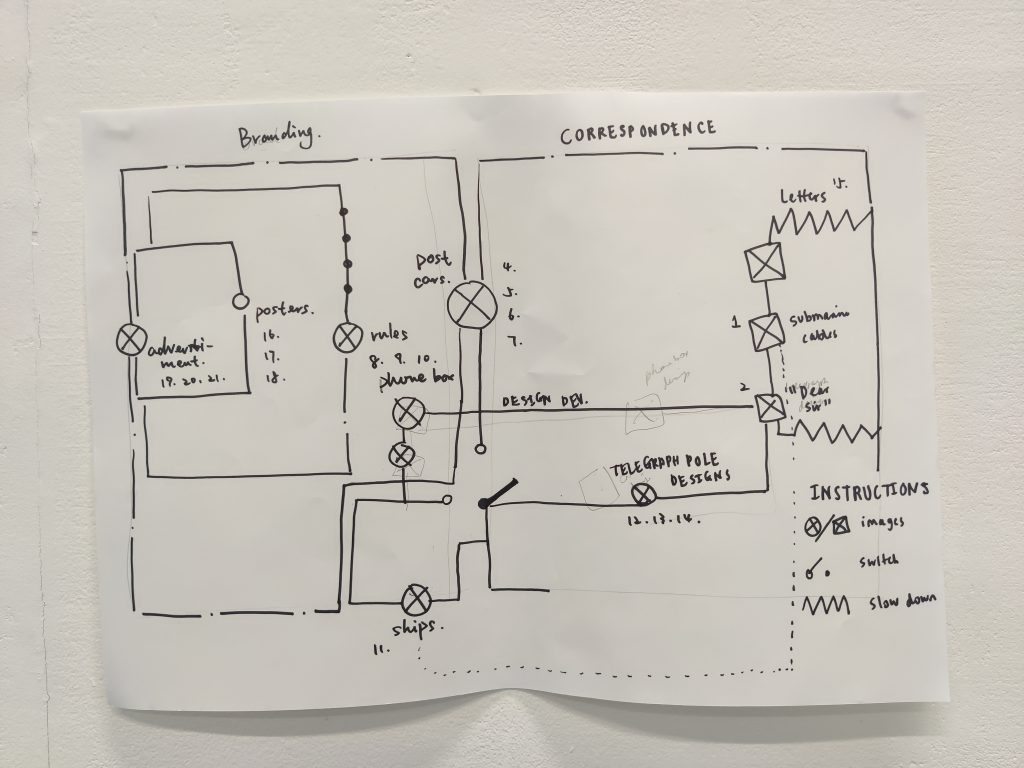 Branding.
CORRESPONDENCE
Letters
post
cars.
4.
5.
6.
7.
posters.
16.
17.
18.
adverti-
ment.
19. 20. 21.
rules
8. 9. 10.
phone box
1
submarine
cables
phone box
design
DESIGN DEV.
2
"Dear
Sir"
TELEGRAPH POLE
DESIGNS
12. 13. 14.
INSTRUCTIONS
images
switch
slow down
ships.
11.